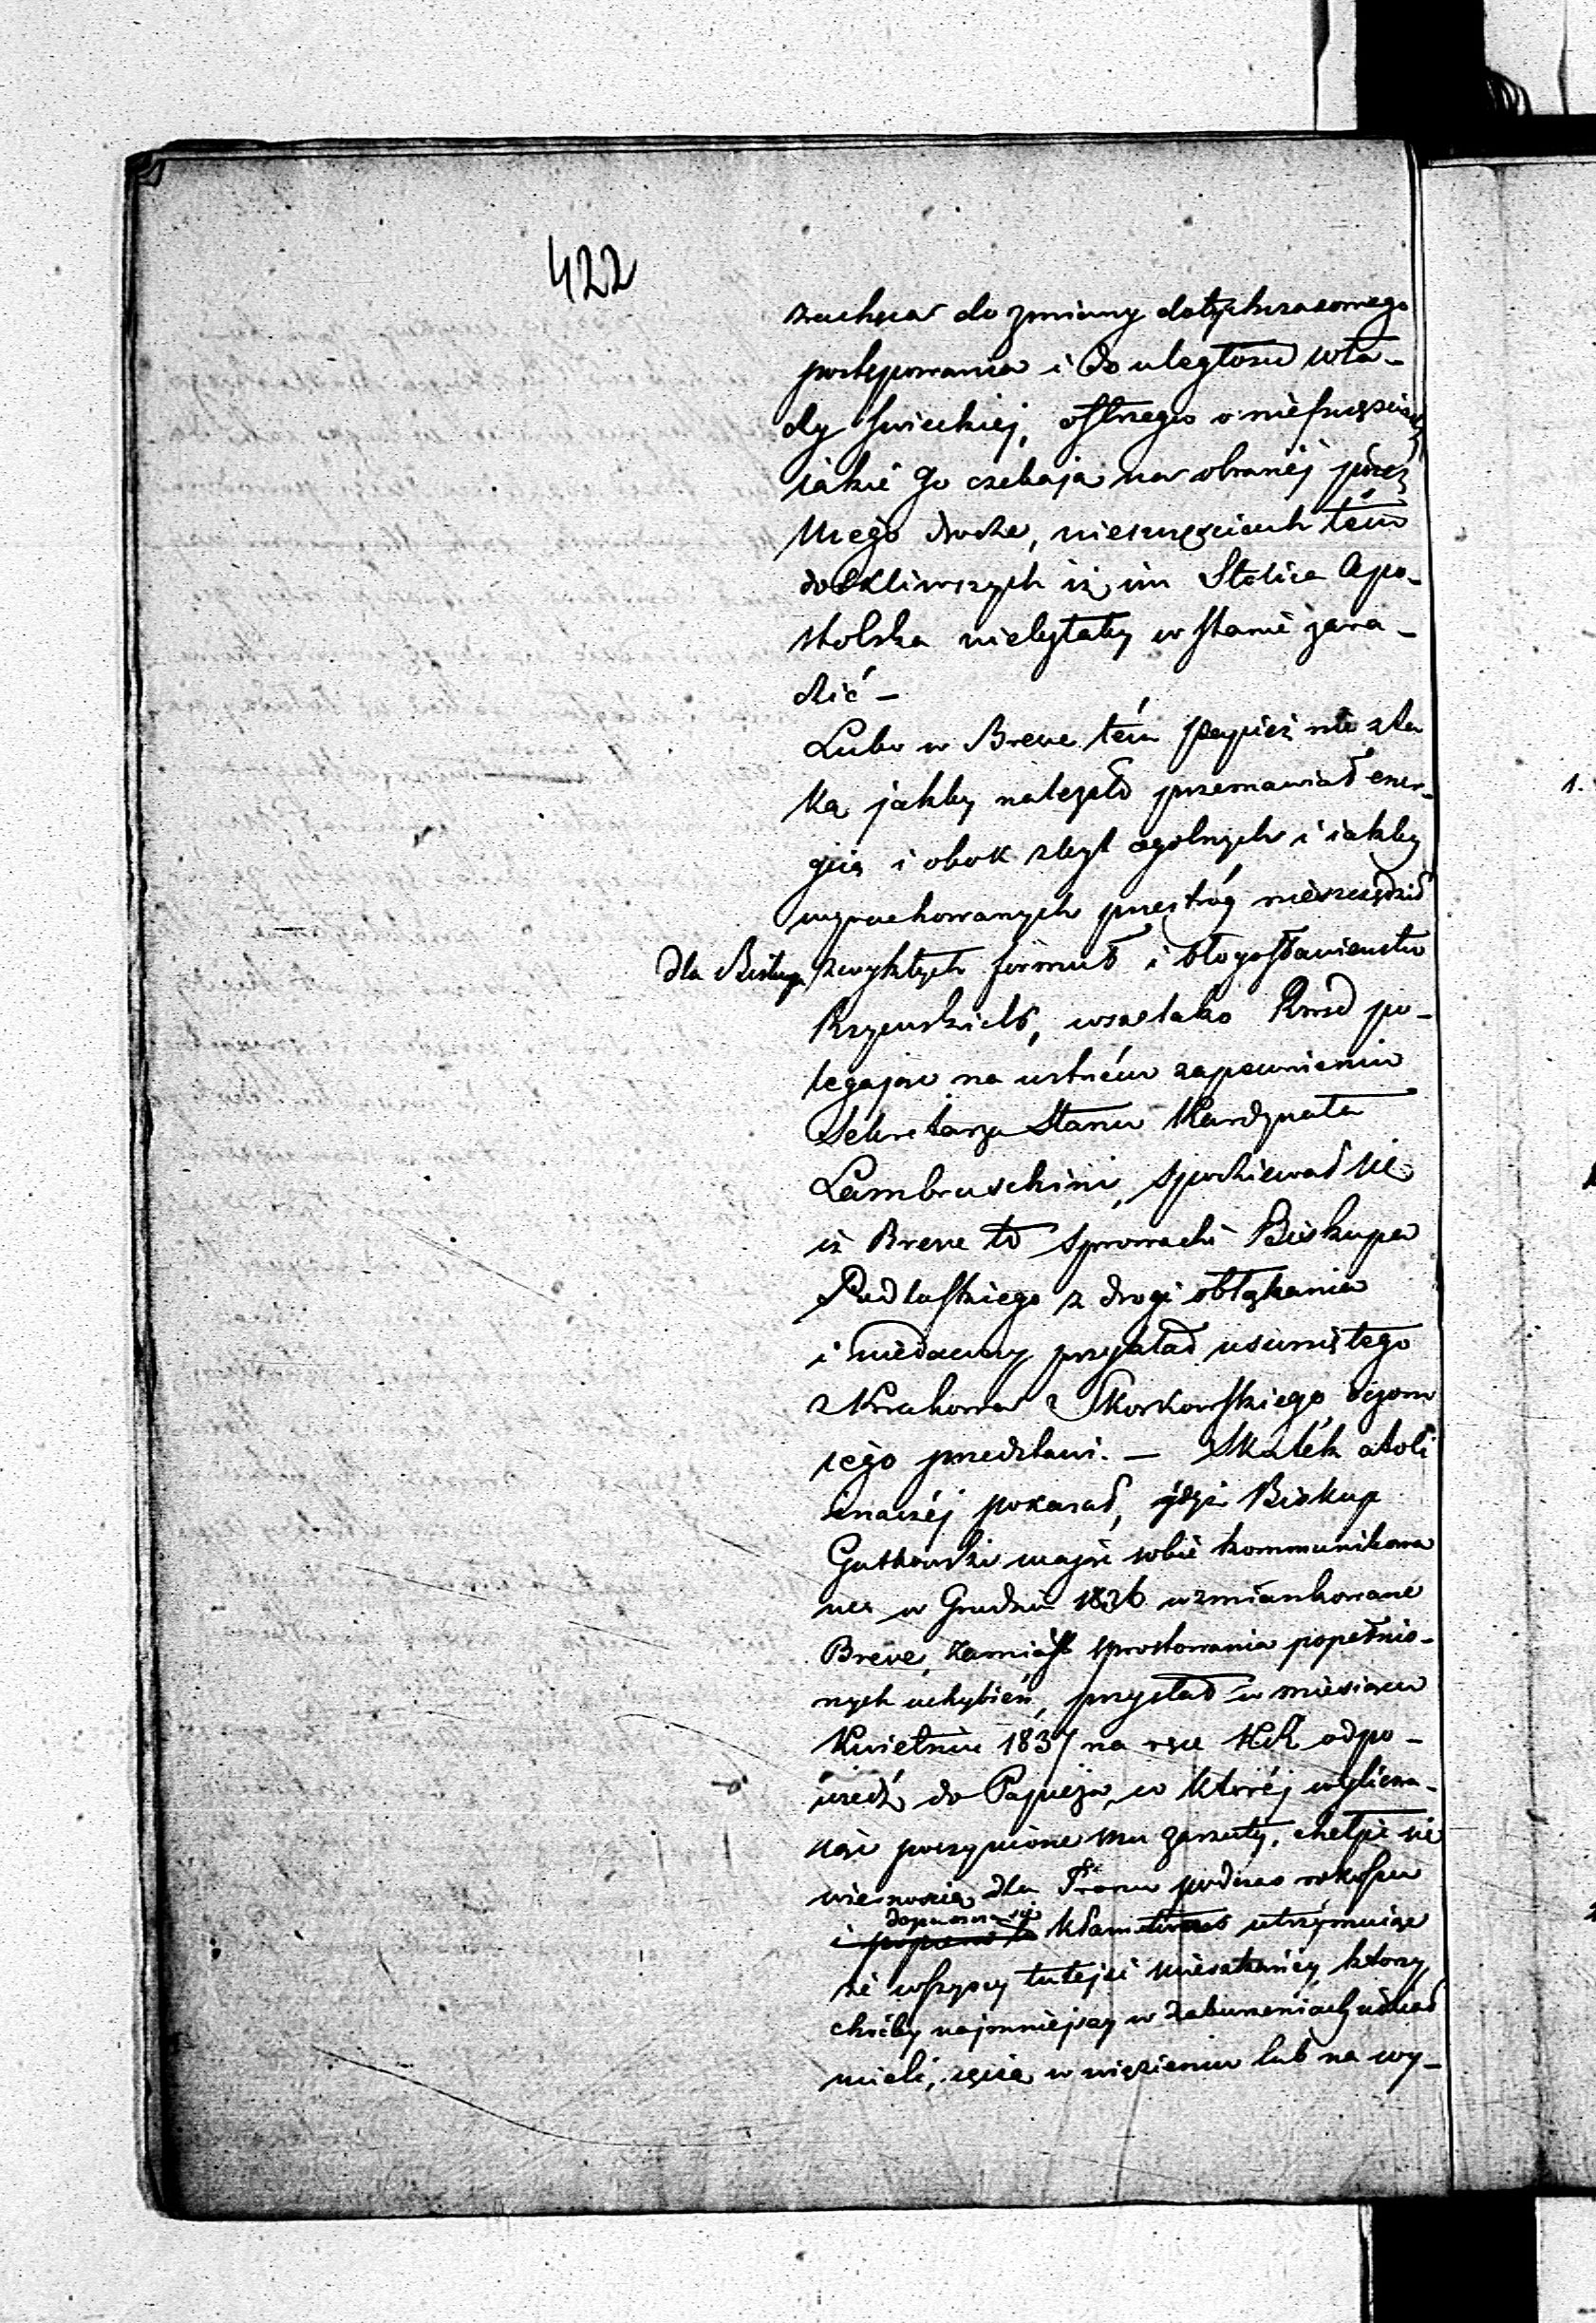 422
zachęca do zmiany dotychczasowego
postępowania i do uległości wła-
dzy swieckiej, ostrzega o nieszczęściach
iakie go czekają na obranej przez
niego drodze, nieszczęściach tém
dotkliwszych iż im Stolica Apo-
stolska niebyłaby w stanie zara-
dzić –
Lubo w Breve tém Papież nie z ta
ką jakby należało przemawiał ener-
gią i obok zbyt ogólnych i iakby
wyrachowanych przestróg nieszczędził
dla Biskupa zwykłych formuł i błogosławieństw
Rzymskich, wszelako Rząd po-
legając na ustném zapewnieniu
Sekretarza Stanu Kardynała
Lambruschini, spodziewał się
iż Breve to sprowadzi Biskupa
Podlaskiego z drogi obłąkania
i niedawny przykład usuniętego
z Krakowa Skorkowskiego oczom
iego przedstawi. – Skutek atoli
inaczéj pokazał, gdyż Biskup
Gutkowski mając sobie kommunikowa
ne w Grudniu 1836 wzmiankowane
Breve, zamiast sprostowania popełnio-
nych uchybień, przysłał w miesiącu
Kwietniu 1837 na ręce odpo-
wiedź do Papieża, w któréj wylicza-
jąc poczynione mu zarzuty, chełpi się
wiernością dla Tronu podczas rokoszu
i dopuszcza się kłamstwa utrzymuiąc
że wszyscy tutejsi mieszkańcy, którzy
choćby najmniejszy w zaburzeniach udział
mieli, ięczą w więzieniu lub na wy-